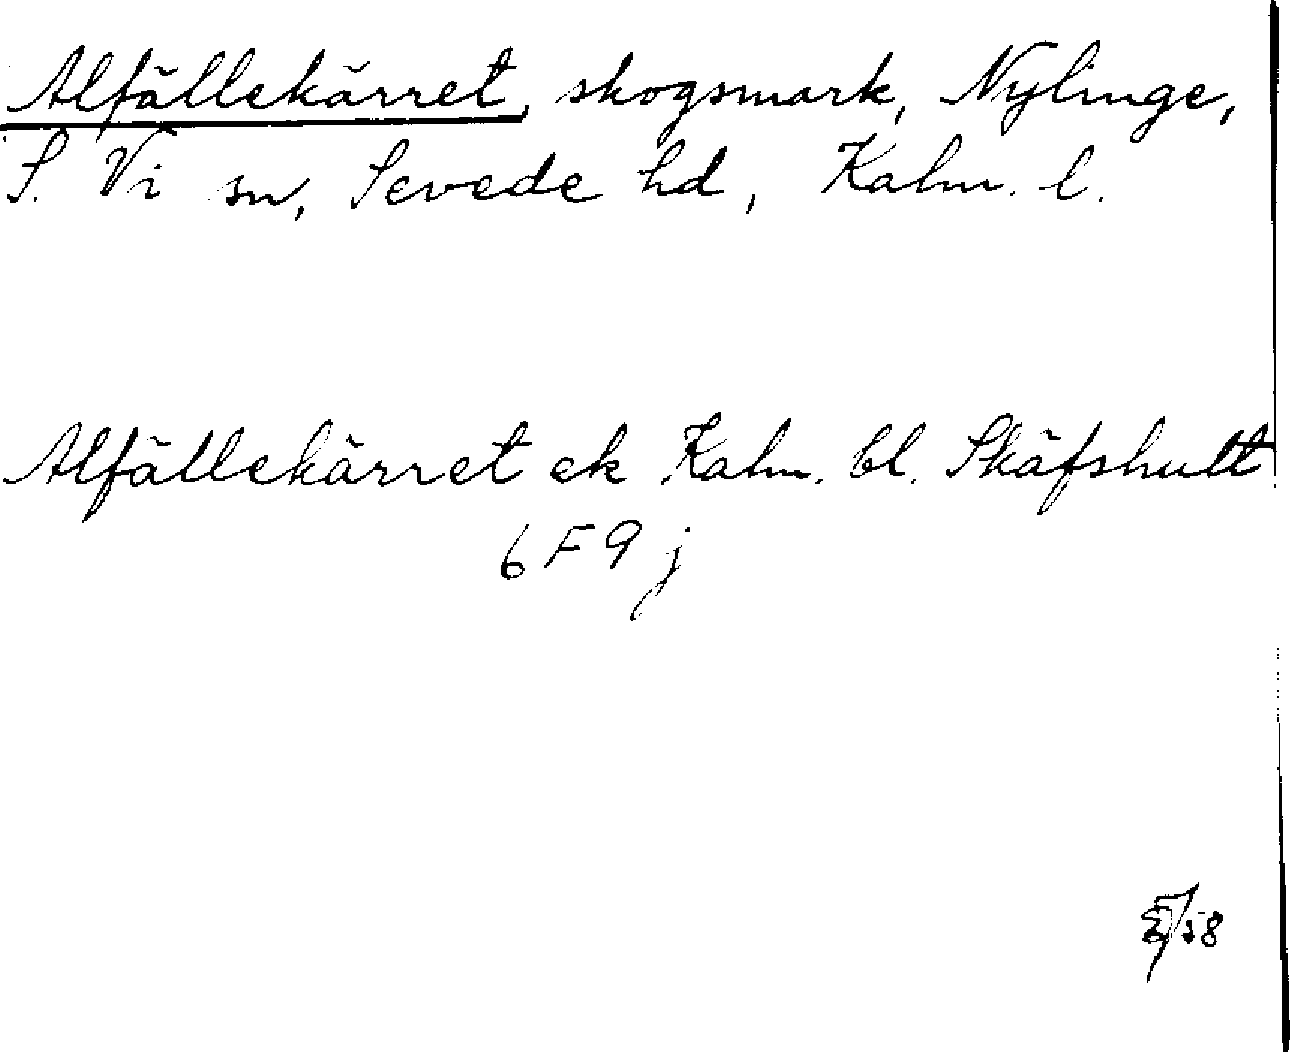 Alfällekärret, skogsmark, Nylinge,
S. Vi sn, Sevede hd, Kalm. l.
Alfällekärret ek Kalm. bl. Skäfshult
6 F 9 j
58